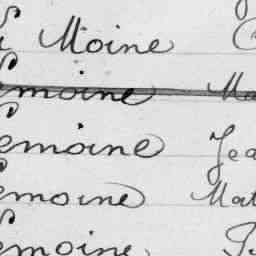 Moine
emoine Ma
emoine Jea
emoine Mat
emoine